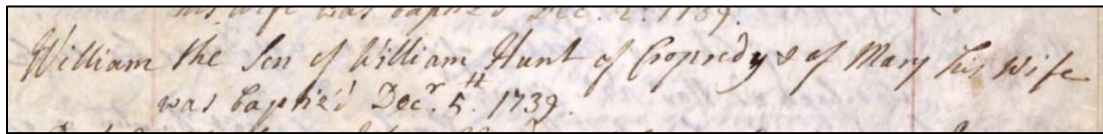 his wife was baptiz'd Dec. 2. 1739.
William the Son of William Hunt of Cropredy & of Mary his Wife
was baptiz'd Decr. 5th. 1739.